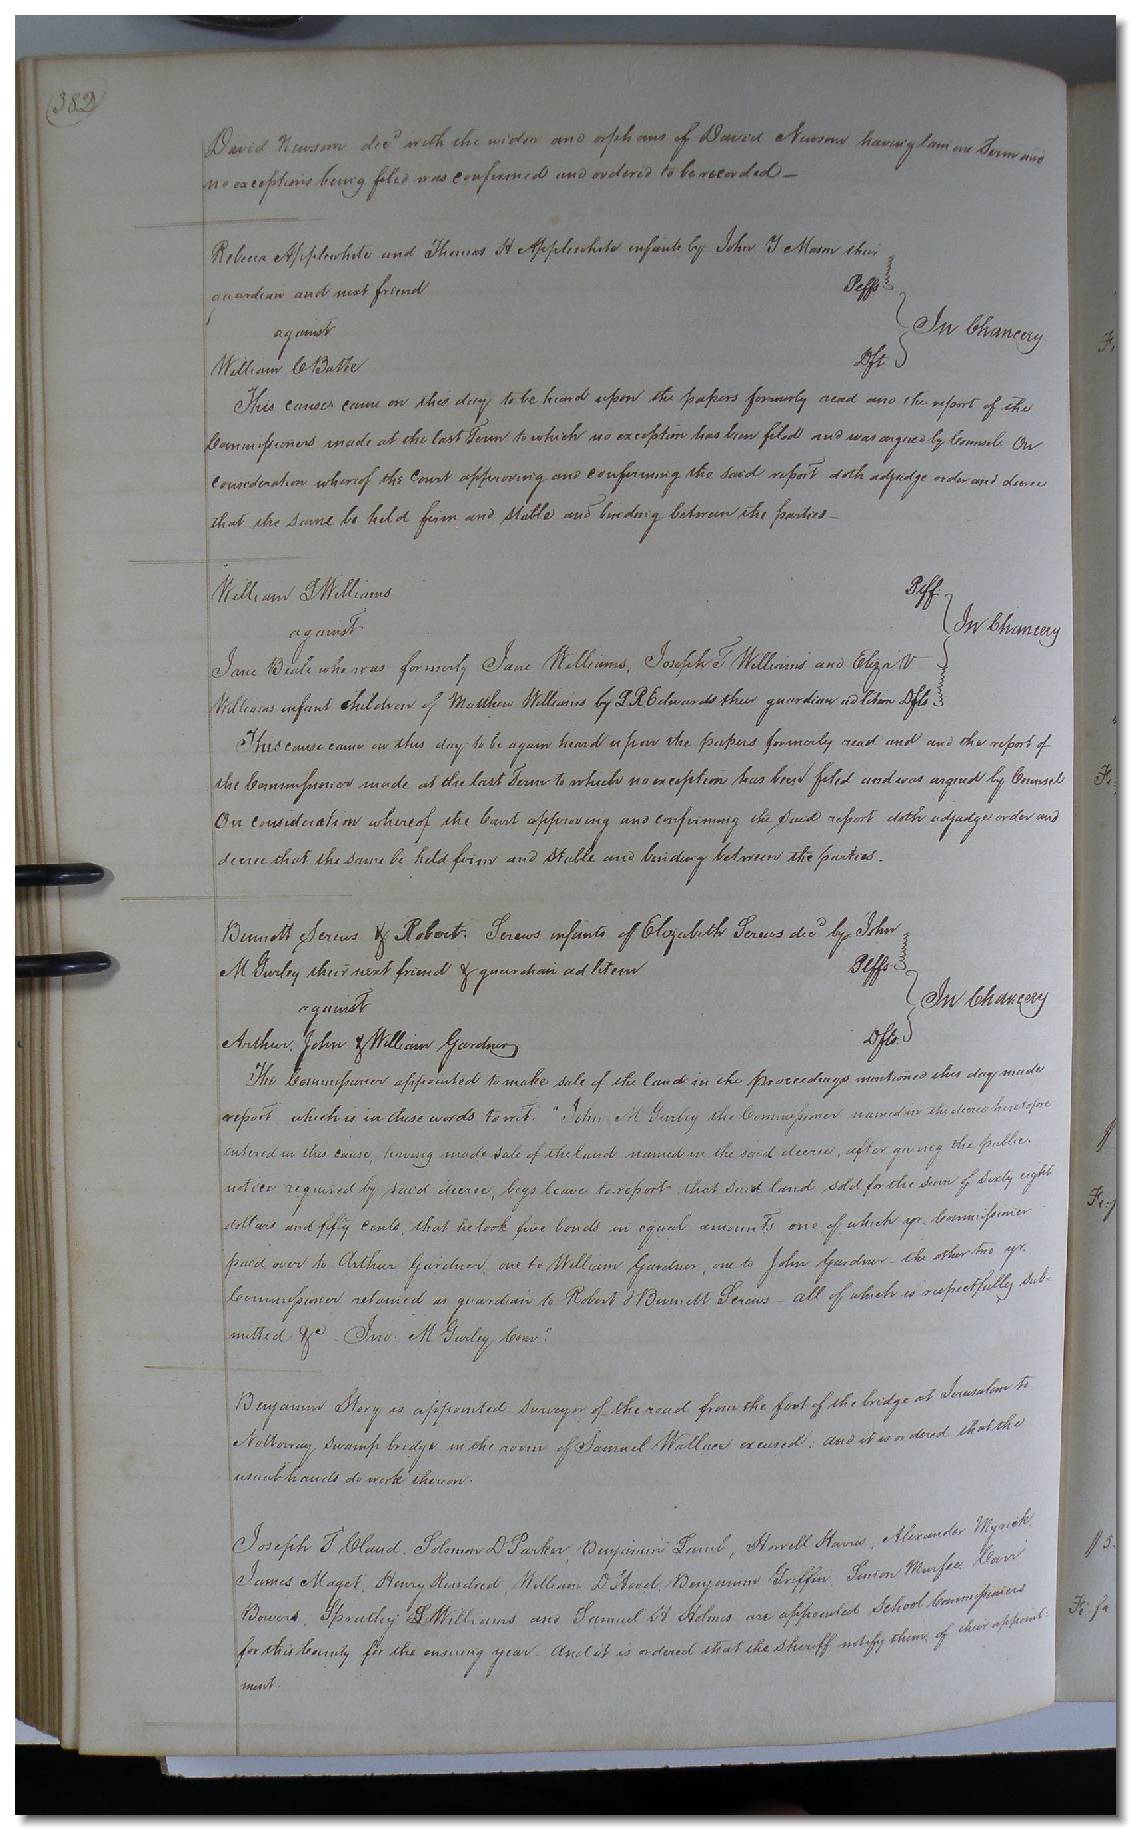 382
David Newsom decd with the widow and orphans of David Newsom having lain one Term and
no exceptions being filed was confirmed and ordered to be recorded —
Rebecca Applewhite and Thomas H Applewhite infants by John Y Mason their
guardian and next friend Plffs
against In Chancery
William C Batte Dft
This cause came on this day to be heard upon the papers formerly read and the report of the
Commissioners made at the last Term to which no exception has been filed and was argued by Counsel. On
consideration whereof the Court approving and confirming the said report doth adjudge order and decree
that the same be held firm and stable and binding between the parties —
William Williams Plff.
against In Chancery
Jane Beale who was formerly Jane Williams, Joseph T Williams and Eliza V
Williams infant children of Matthew Williams by Edwards their guardian ad litem Dfts
This cause came on this day to be again heard upon the papers formerly read and and the report of
the Commissioner made at the last Term to which no exception has been filed and was argued by Counsel
On consideration whereof the Court approving and confirming the said report doth adjudge order and
decree that the same be held firm and stable and binding between the parties.
Bennett Screws & Robert Screws infants of Elizabeth Screws decd by John
M Gurley their next friend & guardian ad litem Plffs
against In Chancery
Arthur, John & William Gardner Dfts.
The Commissioner appointed to make sale of the land in the proceedings mentioned this day made
report which is in these words to wit. "John M Gurley the Commissioner named in the decree heretofore
entered in this cause, having made sale of the land named in the said decree, after giving the public
notice required by said decree, begs leave to report that said land sold for the sum of sixty eight
dollars and fifty cents, that he took five bonds in equal amounts one of which yr. Commissioner
paid over to Arthur Gardner, one to William Gardner, one to John Gardner — the other two yr.
Commissioner retained as guardian to Robert & Bennett Screws — all of which is respectfully sub-
mitted &c. Jno. M Gurley Comr."
Benjamin Story is appointed surveyor of the road from the foot of the bridge at Jerusalem to
Nottoway swamp bridge in the room of Samuel Wallace excused; and it is ordered that the
usual hands do work thereon.
Joseph T Claud, Solomon D Parker, Benjamin Lamb, Howell Harris, Alexander Myrick,
James Maget, Henry Kindred, William D Hood, Benjamin Griffin, Simon Murfee, Carr
Bowers, Spratley Williams and Samuel Holmes are appointed School Commissioners
for this County for the ensuing year. And it is ordered that the sheriff notify them of their appoint-
ment.
Fi fa